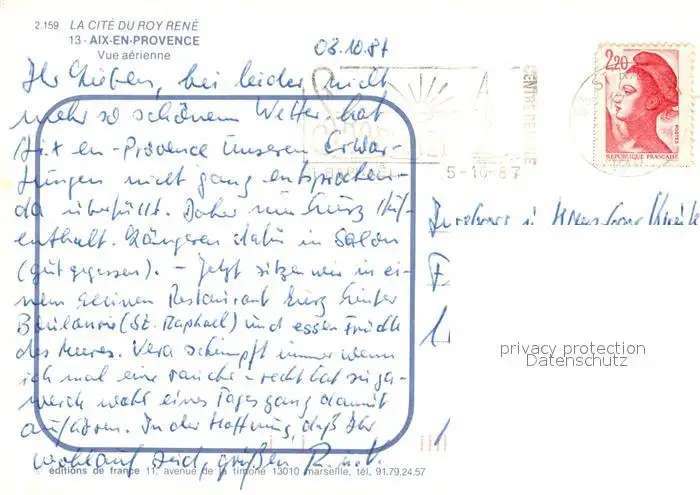 2.159 LA CITÉ DU ROY RENÉ
13 - AIX-EN-PROVENCE
Vue aérienne
03.10.87
Ihr Lieben, bei leider nicht
mehr so schönem Wetter hat
Aix en-Provence unseren Erwar-
tungen nicht ganz entsprochen -
da überfüllt. Daher nur kurz Auf-
enthalt. Längeren dafür in Salon
(gut gegessen). - Jetzt sitzen wir in ei-
nem kleinen Restaurant kurz hinter
Boulouris (St. Raphael) und essen Früchte
des Meeres. Vera schimpft immer wenn
ich mal eine rauche - recht hat sie, ja-
werde wohl eines Tages ganz damit
aufhören. In der Hoffnung, daß Ihr
wohlauf seid, grüßen
© éditions de france 11, avenue de la timone 13010 marseille, tél. 91.79.24.57
5-10-87
2,20
POSTES
REPUBLIQUE FRANÇAISE
privacy protection
Datenschutz